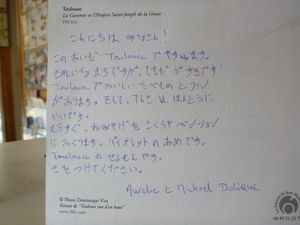 Toulouse
La Garonne et l'Hospice Saint-Joseph de la Grave
TVI 012
こんにちは みなさん!
このあいだ Toulouse で すみます。
きれいな まちですが、しずかが すきです!
Toulouse で おいしい たべもの と
があります。そして、てんき は ほんとうに
いいです。
もうすぐ、おみやげを さくらや ペンション
に おくります。バイオレットの あめ です。
Toulouse の せんもん です。
きを つけて ください。
Aurélie と Mickael
© Photo Dominique Viet
Extrait de "Toulouse vue d'en haut"
www.361.com